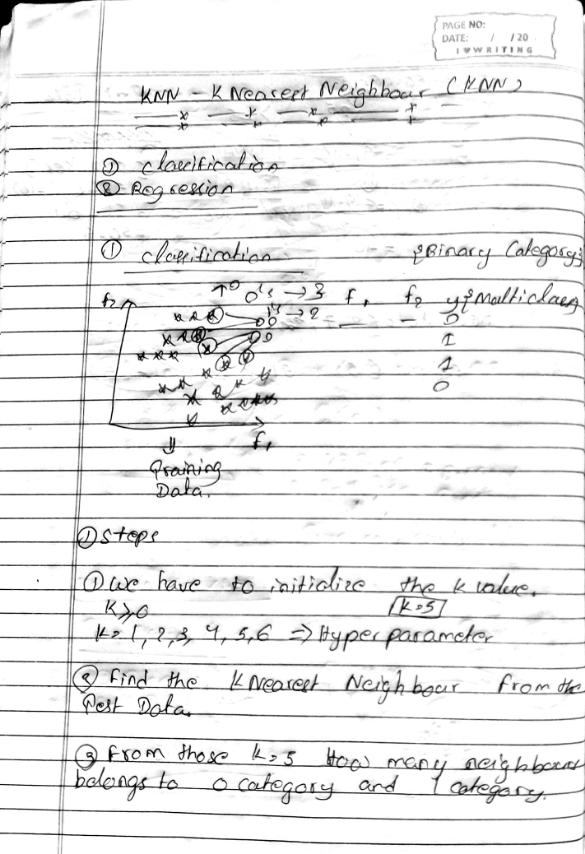 PAGE NO:
DATE: / / 20
I ♥ WRITING
KNN - K Nearest Neighbour (KNN)
① classification
② Regression
① classification {Binary Category}
↑0 0's → 3 f₁ f₂ y {Multiclass
f₂ 1's → 2 — — 0
1
1
0
f₁
⇓
Training
Data.
① Steps
① we have to initialize the k value.
K≥0 k=5
k= 1, 2, 3, 4, 5, 6 ⇒ Hyperparameter
② Find the K Nearest Neighbour from the
Test Data.
③ From those k=5 How many neighbours
belongs to 0 category and 1 category.